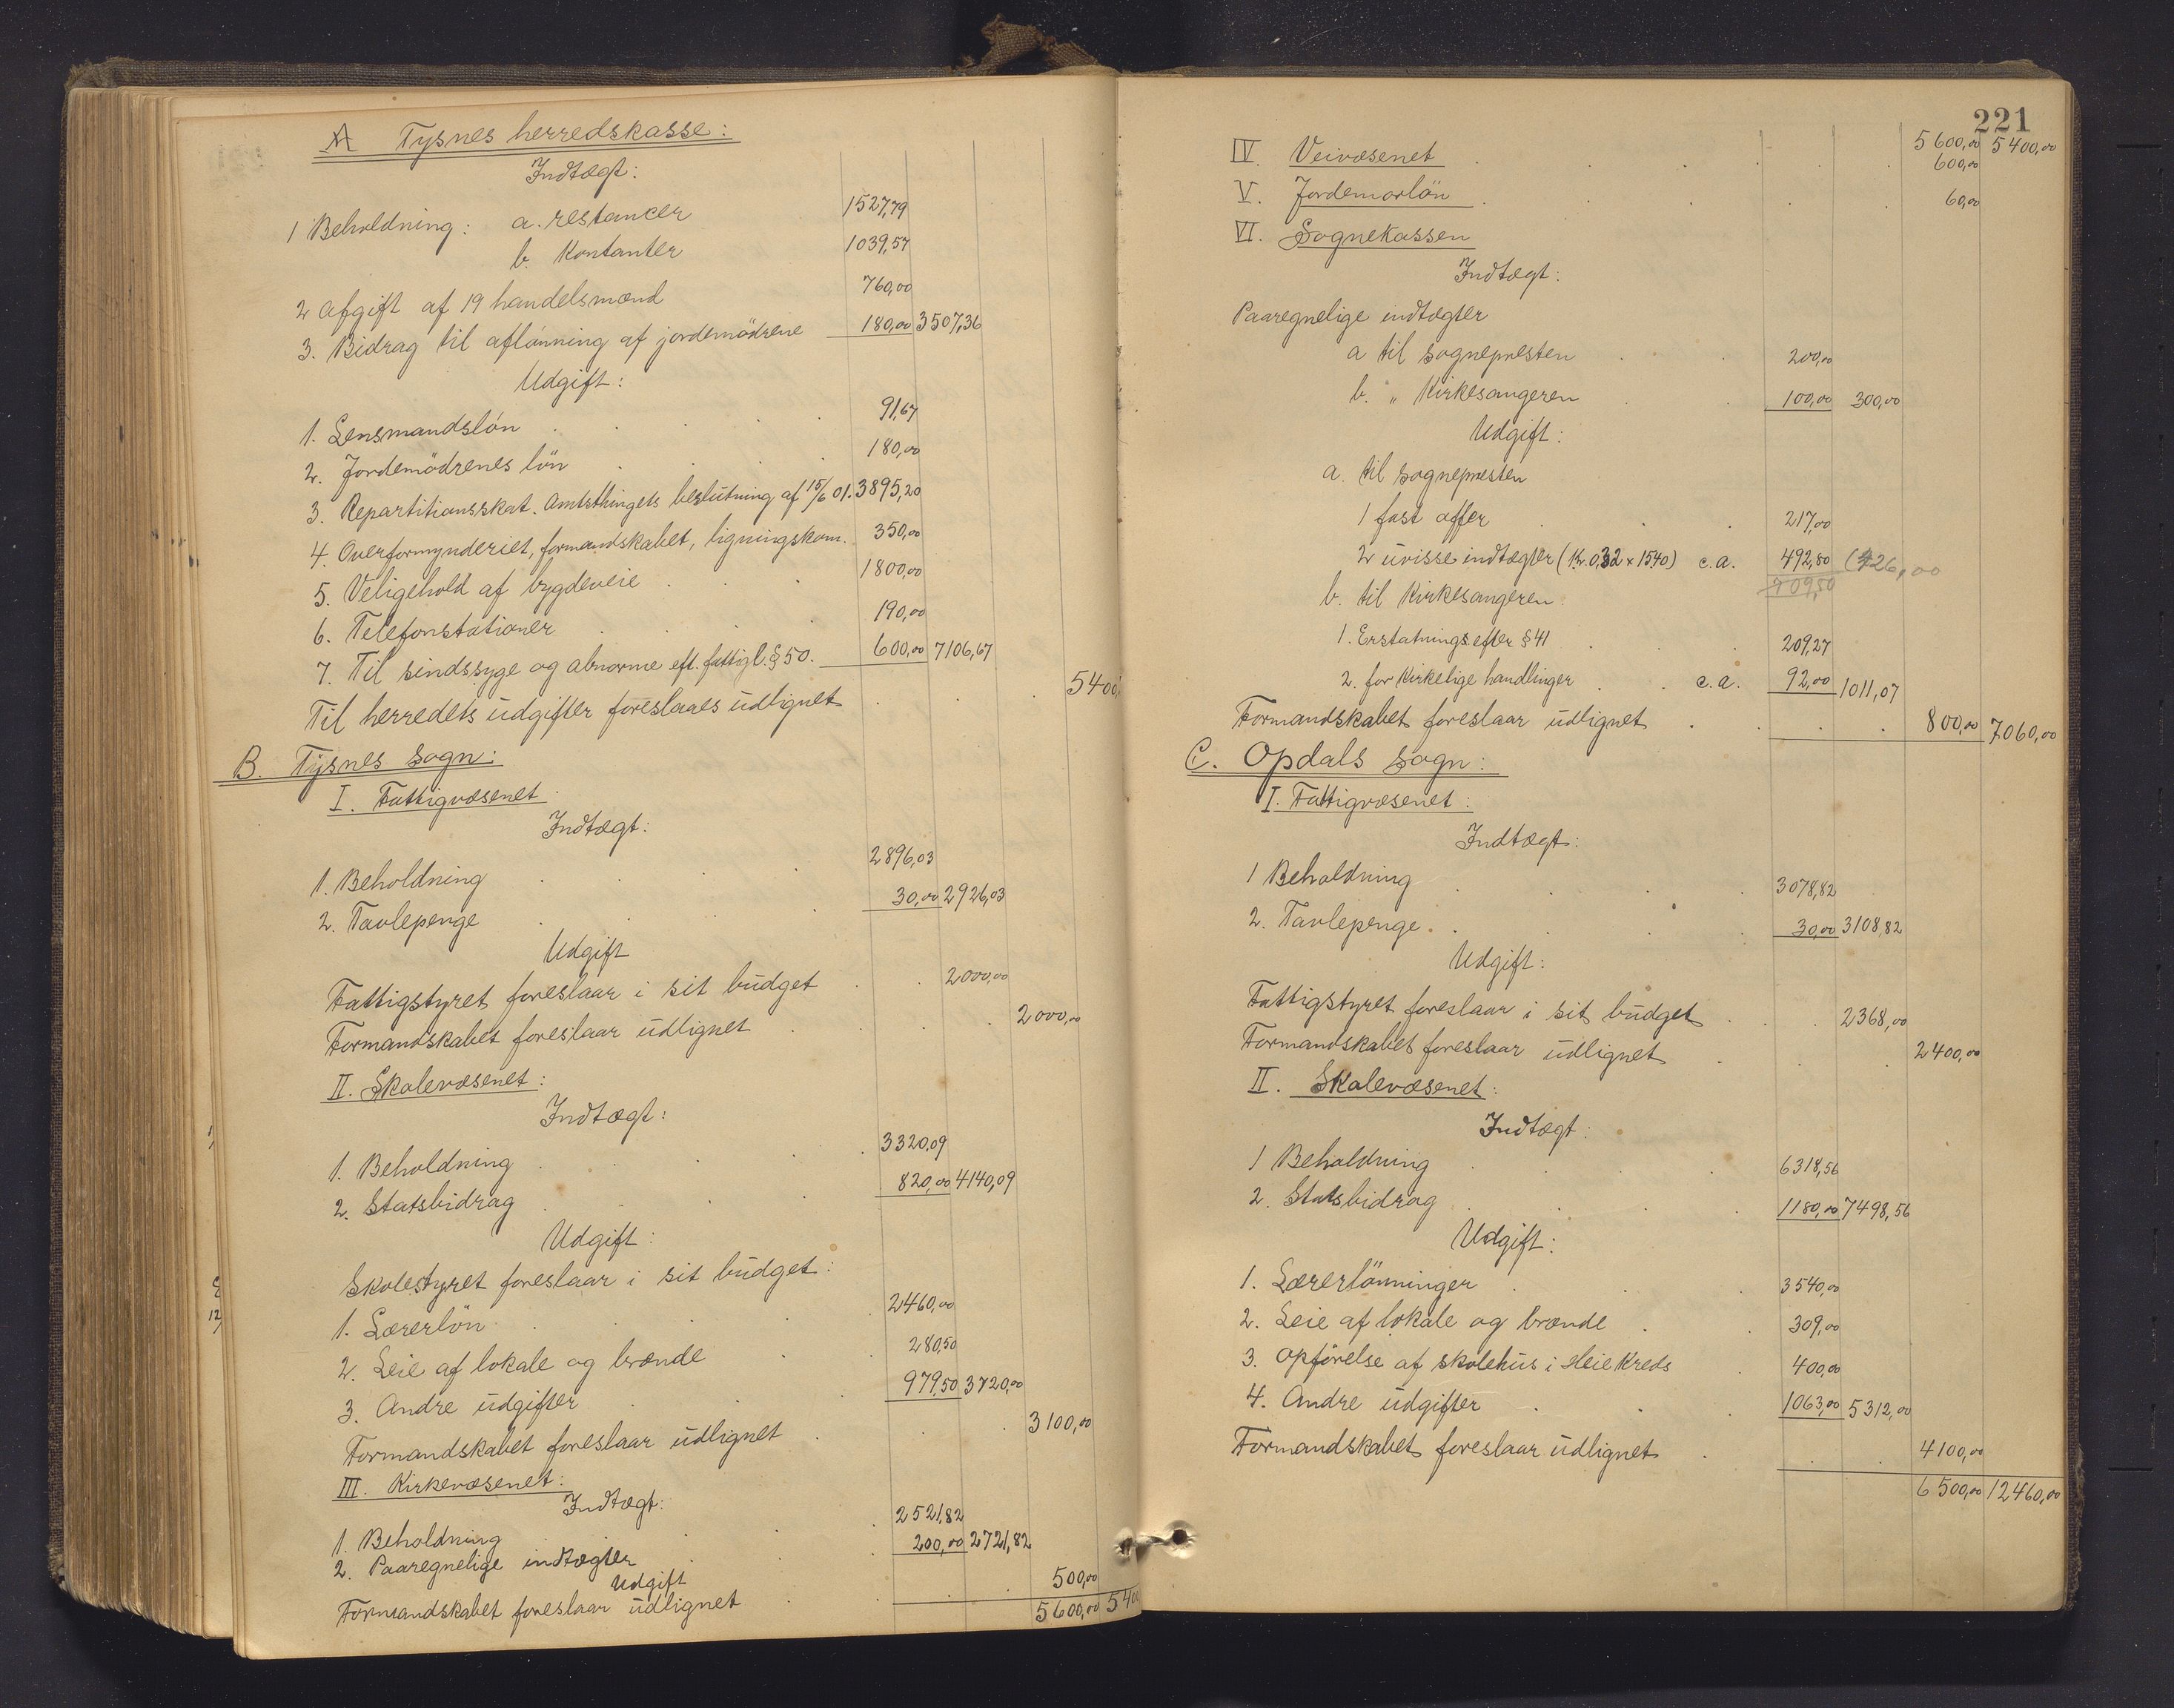 A Tysnes herredskasse:
Indtægt:
1 Beholdning: a. restancer 1527,79
b. Kontanter 1039,57
2 Afgift af 19 handelsmænd 760,00
3. Bidrag til aflønning af jordemødrene 180,00 3507,36
Udgift:
1. Lensmandsløn 91,67
2. Jordemødrenes løn 180,00
3. Repartitionsskat. Amtsthingets beslutning af 15/6 01. 3895,20
4. Overformynderiet, formandskabet, ligningskom. 350,00
5. Veligehold af bygdeveie 1800,00
6. Telefonstationer 190,00
7. Til sindssyge og abnorme eft. fattigl. § 50. 600,00 7106,67
Til herredets udgifter foreslaaes udlignet 5400,
B. Tysnes sogn:
I. Fattigvæsenet
Indtægt:
1. Beholdning 2896,03
2. Tavlepenge 30,00 2926,03
Udgift
Fattigstyret foreslaar i sit budget 2000,00
Formandskabet foreslaar udlignet 2000,00
II. Skolevæsenet:
Indtægt:
1. Beholdning 3320,09
2. Statsbidrag 820,00 4140,09
Udgift:
Skolestyret foreslaar i sit budget:
1. Lærerløn 2460,00
2. Leie af lokale og brænde 280,50
3. Andre udgifter 979,50 3720,00
Formandskabet foreslaar udlignet 3100,00
III. Kirkevæsenet:
Indtægt:
1. Beholdning 2521,82
2. Paaregnelige indtægter 200,00 2721,82
Udgift
Formandskabet foreslaar udlignet 500,00
5600,00 540
221
5600,00 5400,00
IV. Veivæsenet 600,00
V. Jordemorløn 60,00
VI. Sognekassen
Indtægt:
Paaregnelige indtægter
a til sognepresten 200,00
b. " Kirkesangeren 100,00 300,00
Udgift:
a. til sognepresten
1 fast offer 217,00
2 uvisse indtægter (Kr. 0,32 x 1540) c.a. 492,80 (426,00
709,50
b. til Kirkesangeren
1. Erstatnings efter § 41 209,27
2. for Kirkelige handlinger c.a. 92,00 1011,07
Formandskabet foreslaar udlignet 800,00 7060,00
C. Opdals sogn:
I. Fattigvæsenet:
Indtægt:
1 Beholdning 3078,82
2. Tavlepenge 30,00 3108,82
Udgift:
Fattigstyret foreslaar i sit budget 2368,00
Formandskabet foreslaar udlignet 2400,00
II. Skolevæsenet:
Indtægt:
1 Beholdning 6318,56
2. Statsbidrag 1180,00 7498,56
Udgift:
1. Lærerlønninger 3540,00
2. Leie af lokale og brænde 309,00
3. Opførelse af skolehus i Heie Kreds 400,00
4. Andre udgifter 1063,00 5312,00
Formandskabet foreslaar udlignet 4100,00
6500,00 12460,00